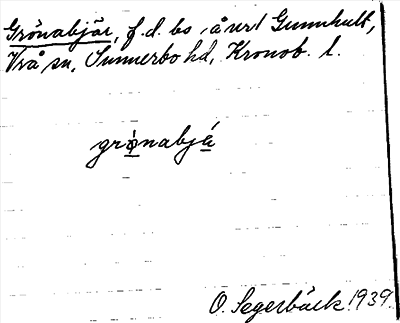 Grönabjär, f.d. bs å url Gunnhult,
Vrå sn, Sunnerbo hd, Kronob. l.
grònabjá
O. Segerbäck 1939